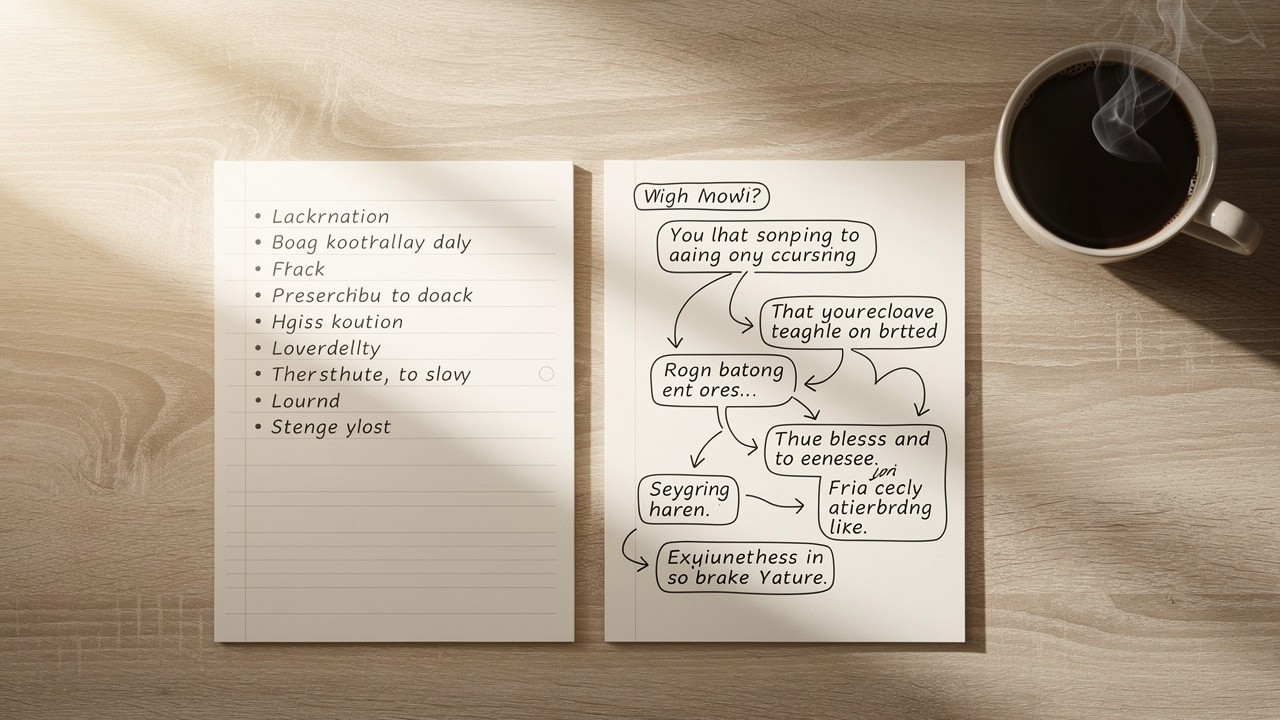 • Lackrnation
• Boag kootrallay daly
• Frack
• Preserchibu to doack
• Hgiss koution
• Loverdellty
• Thersthute, to slow
• Lournd
• Stenge ylost
Wigh Mowi?
You lhat sonping to
aaing ony ccursning
That yourecloave
teaghle on brtted
Rogn batong
ent ores...
Thue blesss and
to eenesee.
Fria cecly
atierbrdng
like.
Seygring
haren.
Exyiunethess in
so brake Yature.